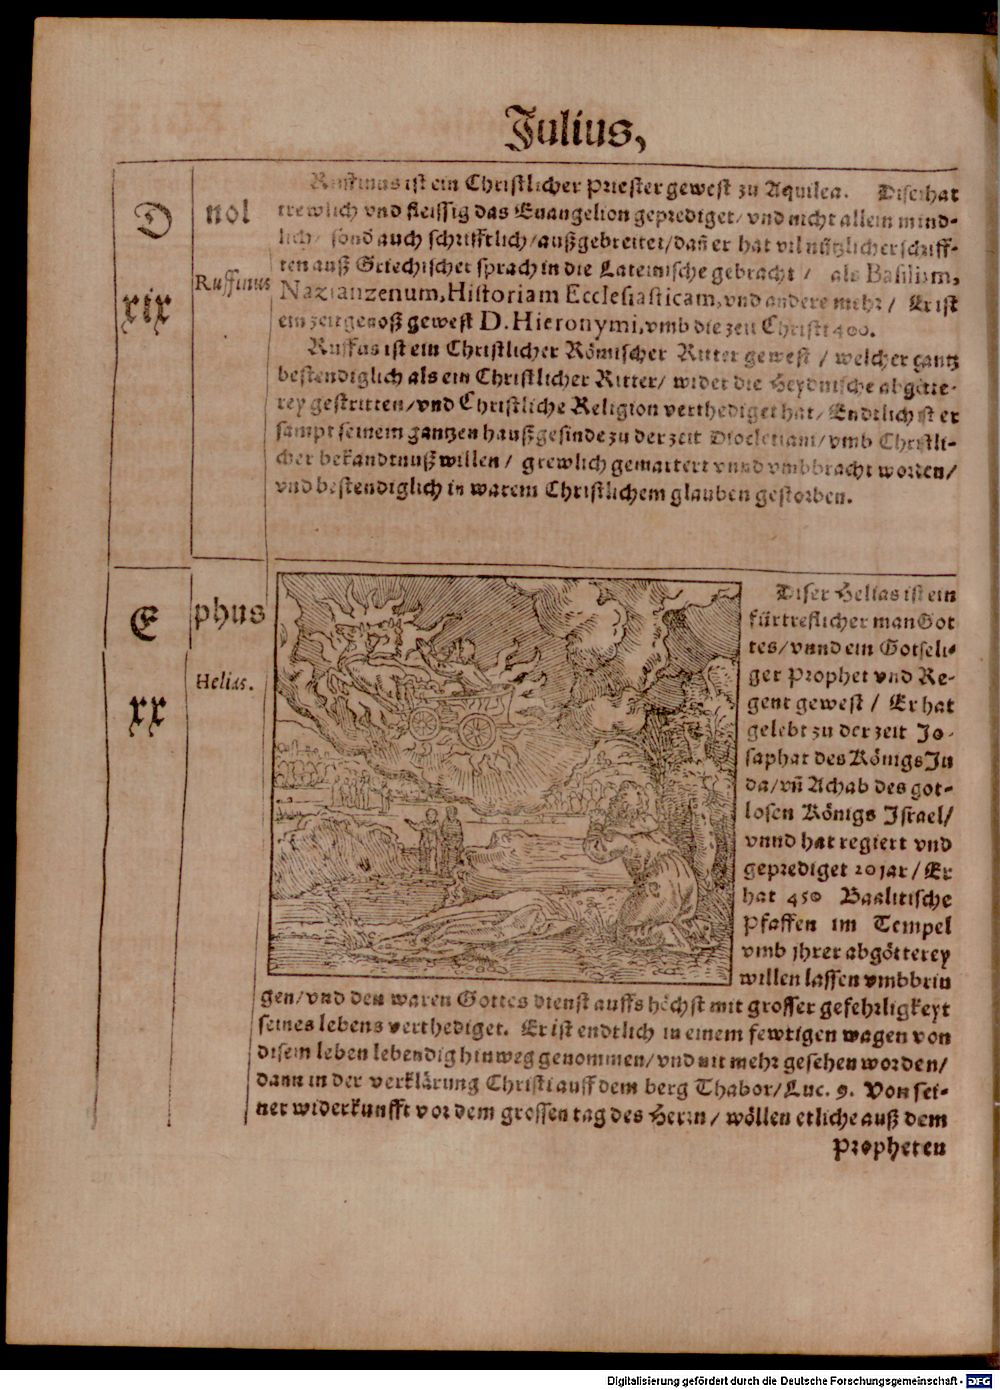 Julius,
D
nol
xix
Ruffinus
Ruffinus ist ein Christlicher Priester gewest zu Aquilea. Diser hat
trewlich vnd fleissig das Euangelion geprediget/ vnd nicht allein mind-
lich/ sond auch schrifftlich/ außgebreitet/ dañ er hat vil nützlicher schriff-
ten auß Griechischer sprach in die Lateinische gebracht/ als Basilium,
Nazianzenum, Historiam Ecclesiasticam, vnd andere mehr/ Er ist
ein zeitgenoß gewest D. Hieronymi, vmb die zeit Christi 400.
Ruffus ist ein Christlicher Römischer Ritter gewest/ welcher gantz
bestendiglich als ein Christlicher Ritter/ wider die Heydnische abgötte-
rey gestritten/ vnd Christliche Religion verthediget hat/ Endtlich ist er
sampt seinem gantzen haußgesinde zu der zeit Diocletiani/ vmb Christli-
cher bekandtnuß willen/ grewlich gemartert vnnd vmbbracht worden/
vnd bestendiglich in warem Christlichem glauben gestorben.
E
phus
xx
Helias.
Diser Helias ist ein
fürtreflicher man Got
tes/ vnnd ein Gotseli-
ger Prophet vnd Re-
gent gewest/ Er hat
gelebt zu der zeit Jo-
saphat des Königs Ju
da/ vñ Achab des got-
losen Königs Israel/
vnnd hat regiert vnd
geprediget 20 jar/ Er
hat 450 Baalitische
Pfaffen im Tempel
vmb jhrer abgötterey
willen lassen vmbbrin
gen/ vnd den waren Gottes dienst auffs höchst mit grosser gefehrligkeyt
seines lebens verthediget. Er ist endtlich in einem fewrigen wagen von
disem leben lebendig hinweg genommen/ vnd nit mehr gesehen worden/
dann in der verklärung Christi auff dem berg Thabor/ Luc. 9. Von sei-
ner widerkunfft vor dem grossen tag des Herrn/ wöllen etliche auß dem
Propheten
Digitalisierung gefördert durch die Deutsche Forschungsgemeinschaft - DFG